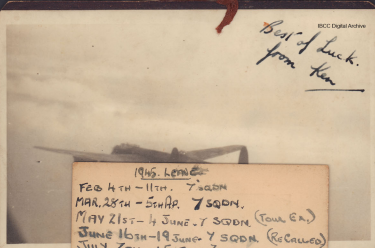 IBCC Digital Archive
Best of Luck.
from Ken
1945. LEAVE
FEB 4TH - 11TH. 7 SQDN
MAR. 28TH - 5TH AP. 7 SQDN.
MAY 21ST - 4 JUNE. 7 SQDN. (TOUR EX.)
JUNE 16TH - 19 JUNE 7 SQDN (RECALLED)
JULY